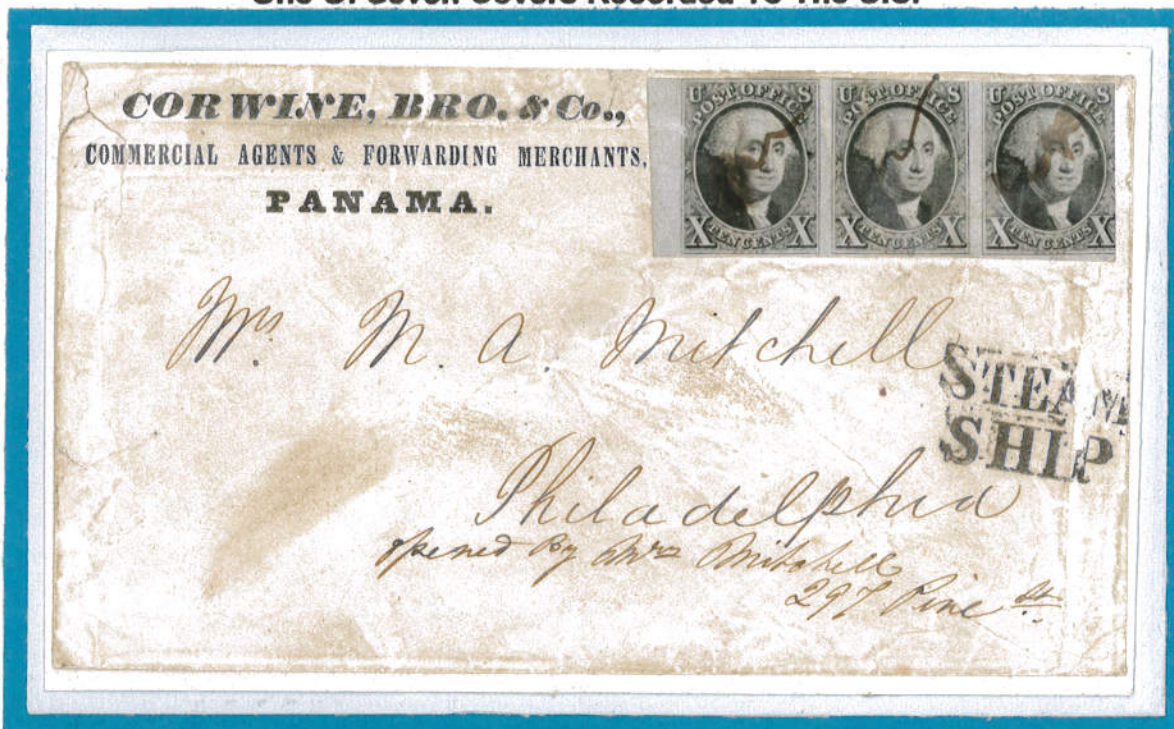 One Of Seven Covers Recorded To The U.S.
CORWINE, BRO. & Co.,
COMMERCIAL AGENTS & FORWARDING MERCHANTS,
PANAMA.
U S
POST OFFICE
X TEN CENTS X
U S
POST OFFICE
X TEN CENTS X
U S
POST OFFICE
X TEN CENTS X
Mrs M. A. Mitchell
STEAM
SHIP
Philadelphia
opened By Mrs Mitchell
297 Pine St.